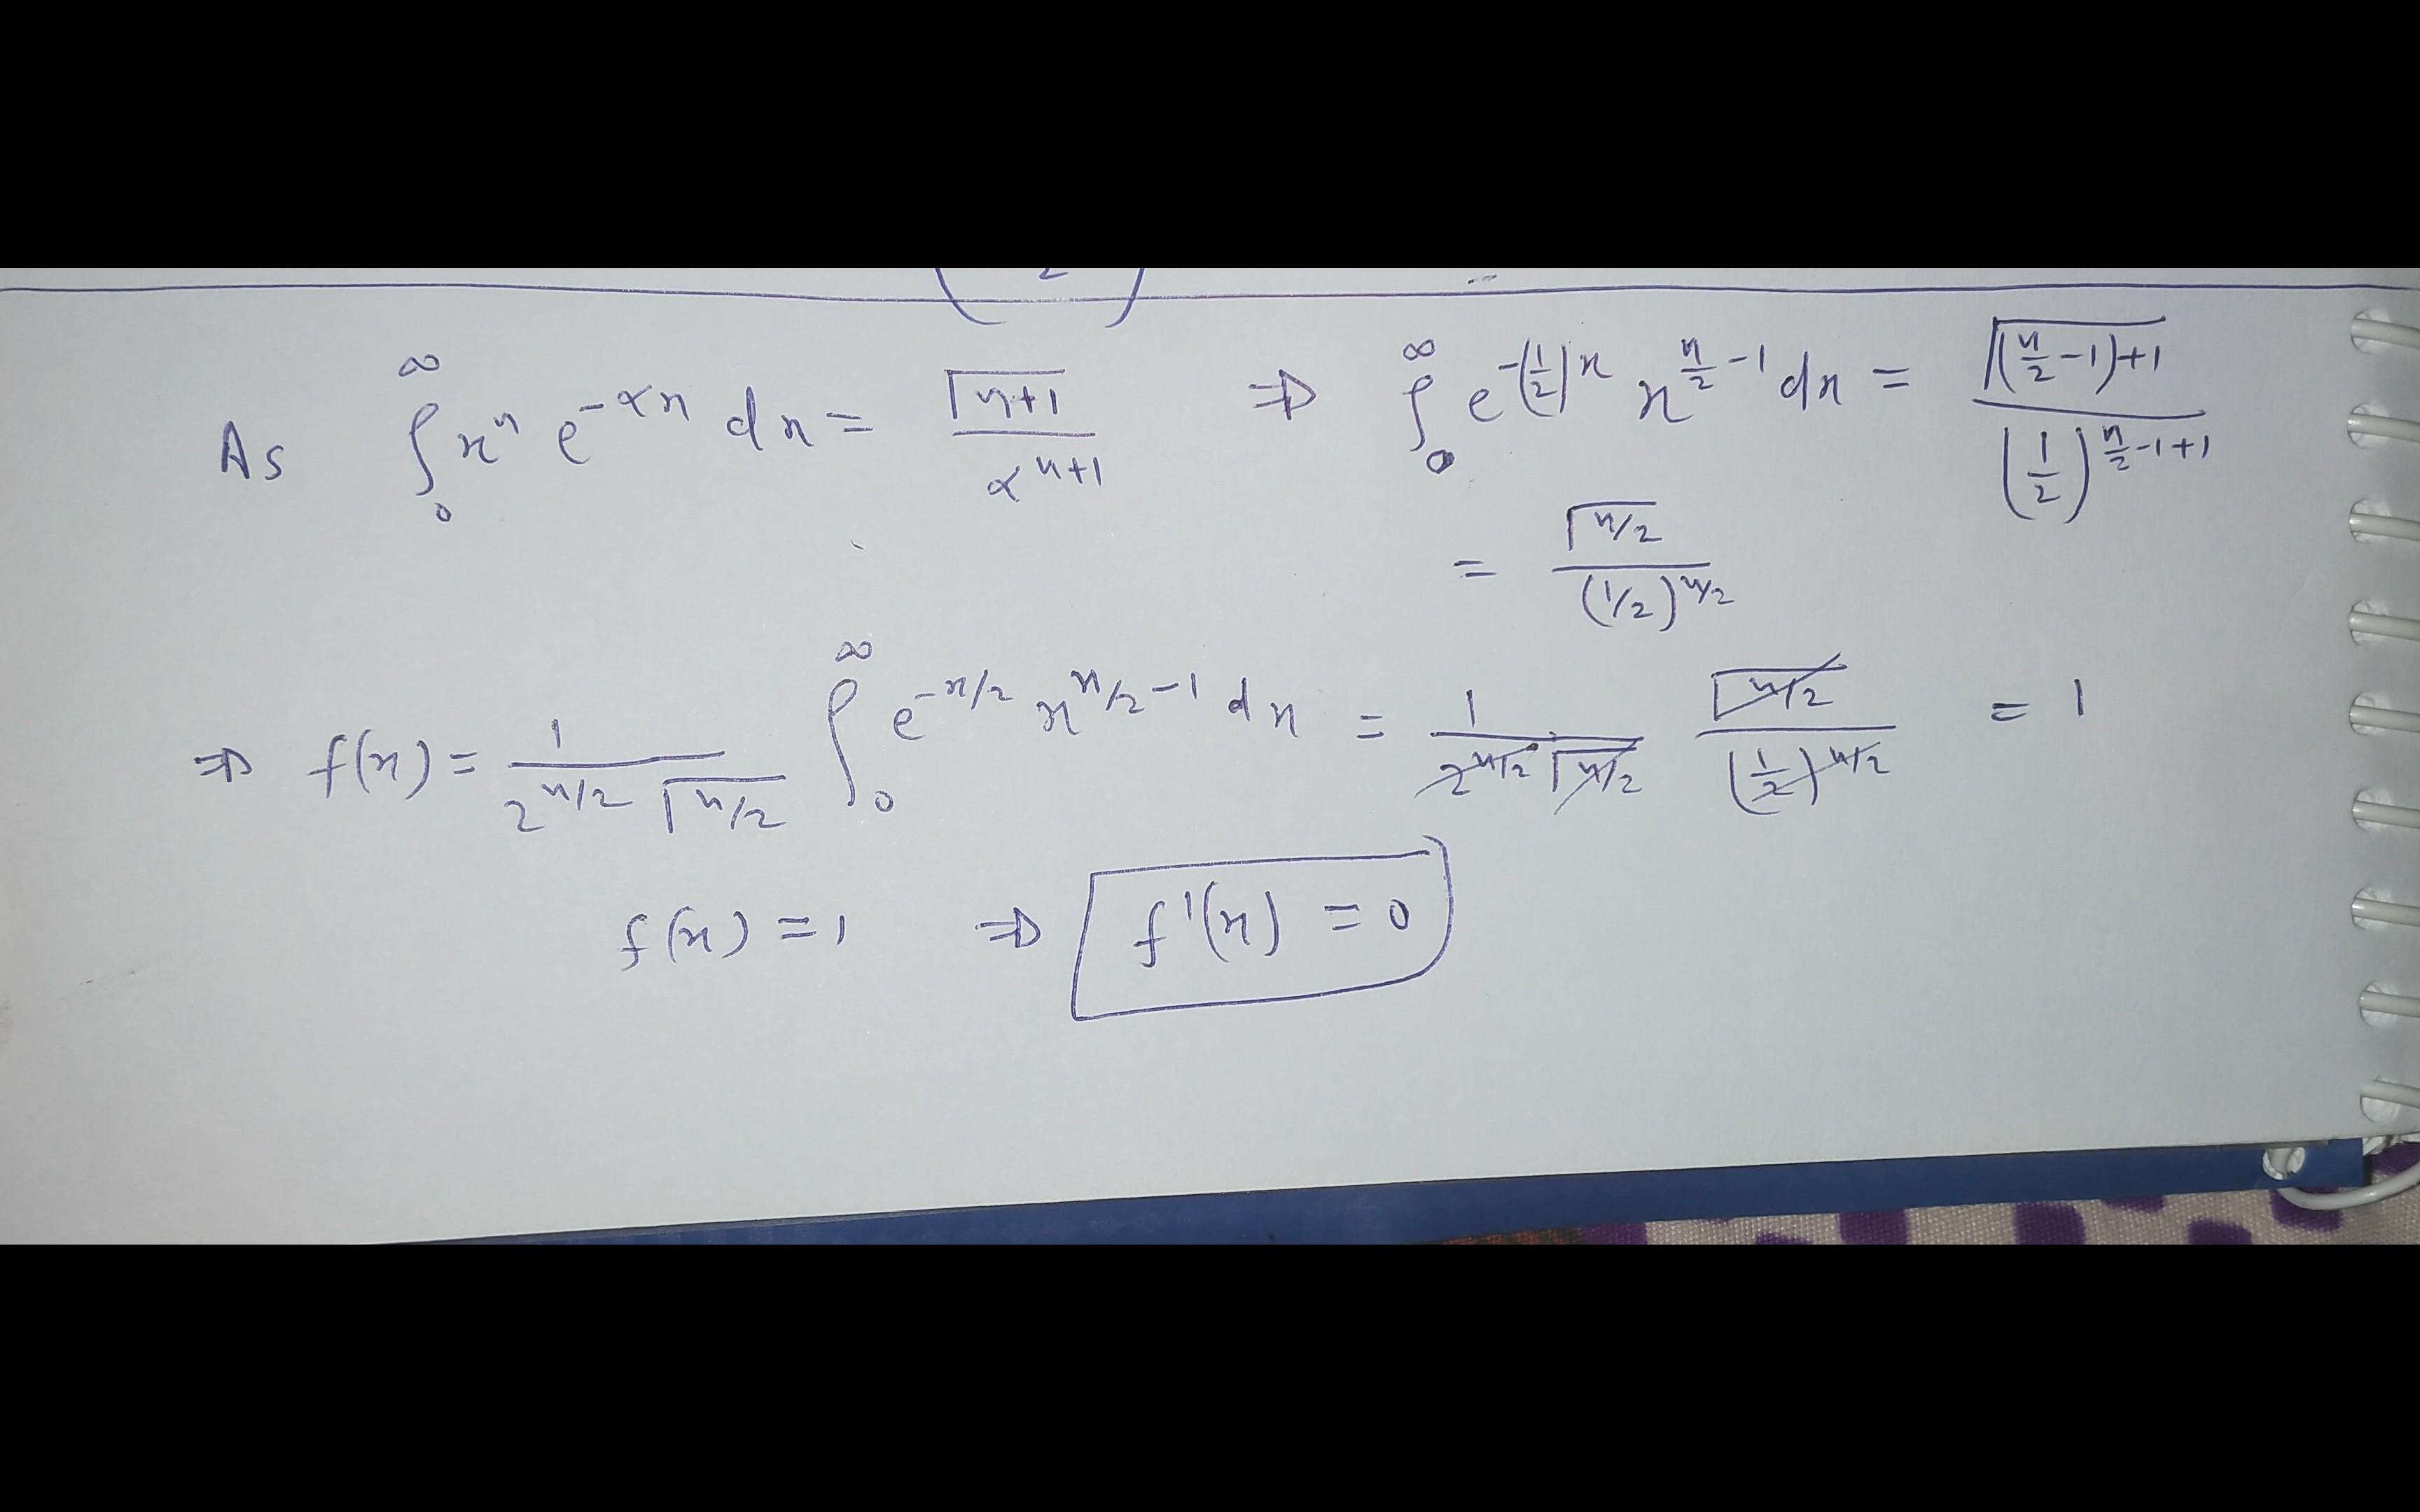 As ∫₀^∞ xⁿ e^{-αx} dx = Γ(n+1) / α^{n+1} ⇒ ∫₀^∞ e^{-(1/2)x} x^{n/2 -1} dx = Γ((n/2 -1)+1) / (1/2)^{n/2 -1+1}
= Γ(n/2) / (1/2)^{n/2}
⇒ f(x) = 1 / (2^{n/2} Γ(n/2)) ∫₀^∞ e^{-x/2} x^{n/2 -1} dx = 1 / (2^{n/2} Γ(n/2)) Γ(n/2) / (1/2)^{n/2} = 1
f(x) = 1 ⇒ f'(x) = 0